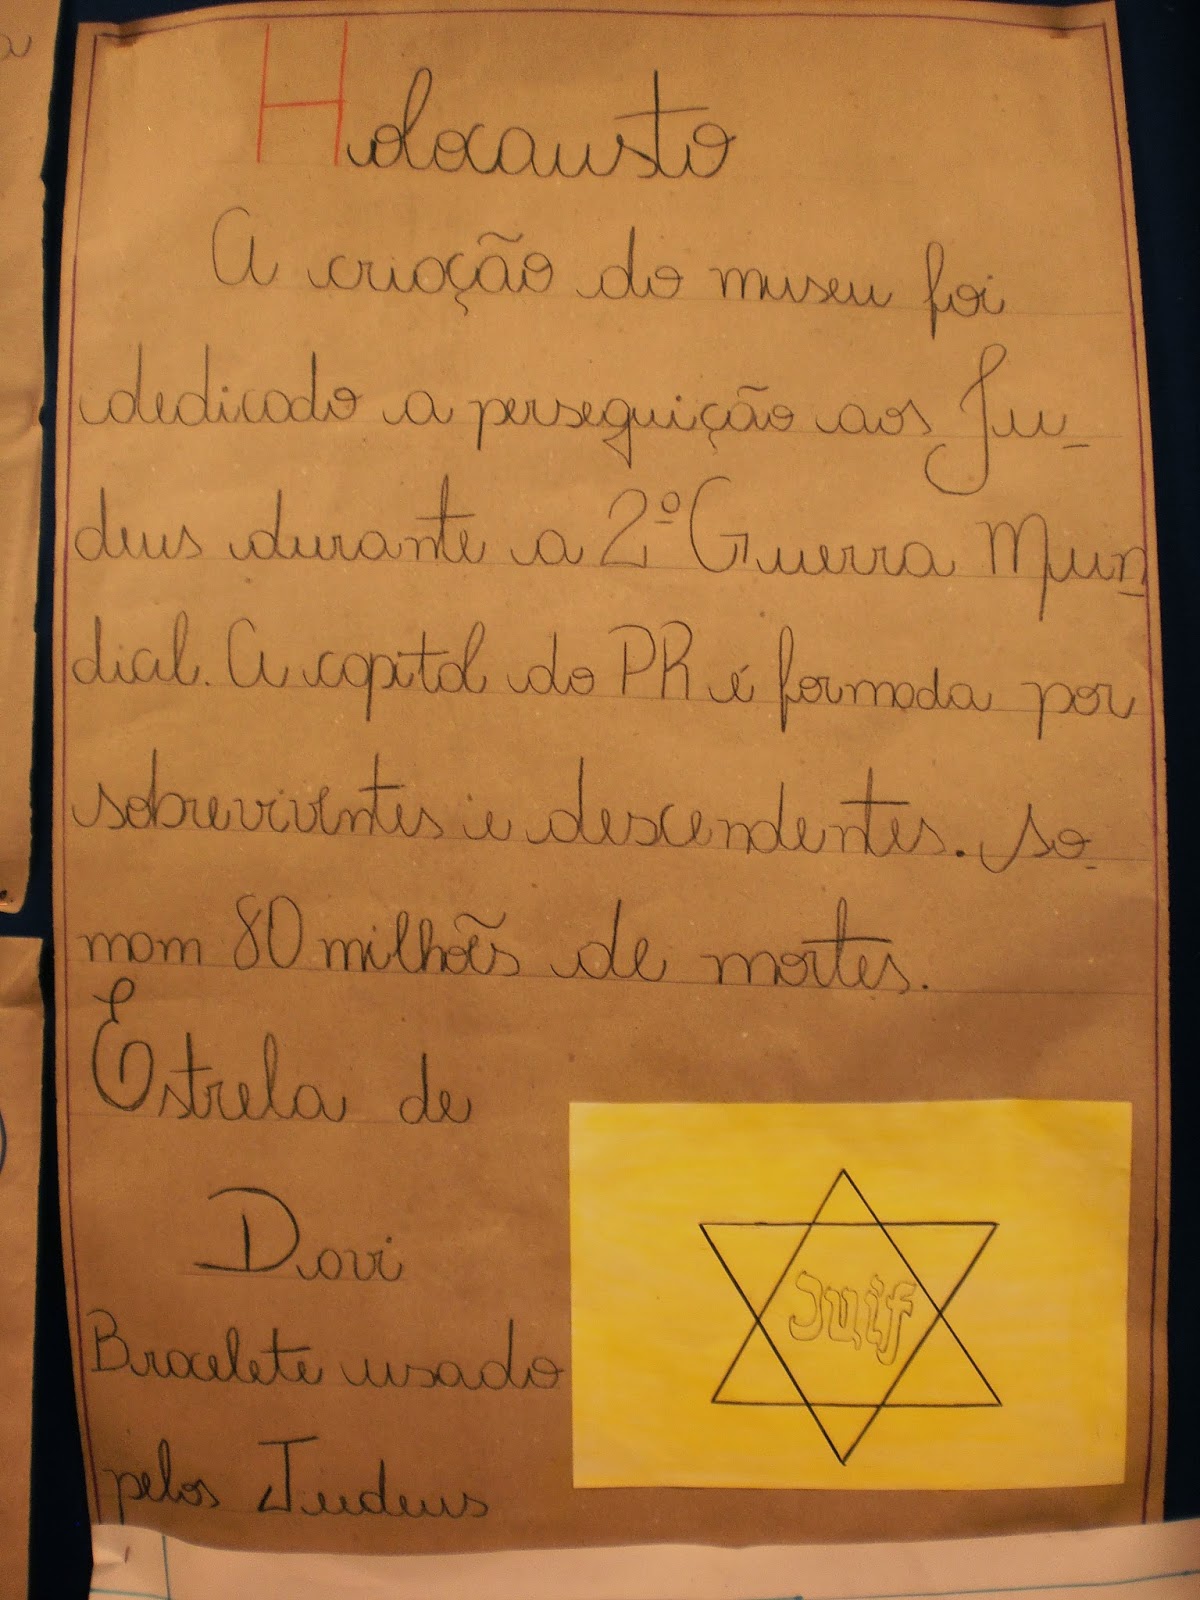 Holocausto
A criação do museu foi
dedicado a perseguição aos Ju-
deus durante a 2º Guerra Mun
dial. A capital do PR é formada por
sobreviventes e descendentes. So-
mam 80 milhões de mortes.
Estrela de
Davi
Juif
Bracelete usado
pelos Judeus